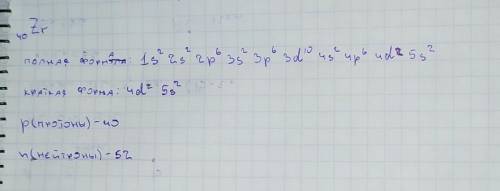 ₄₀Zr
полная форма: 1s² 2s² 2p⁶ 3s² 3p⁶ 3d¹⁰ 4s² 4p⁶ 4d² 5s²
краткая форма: 4d² 5s²
p(протоны)-40
n(нейтроны)-52